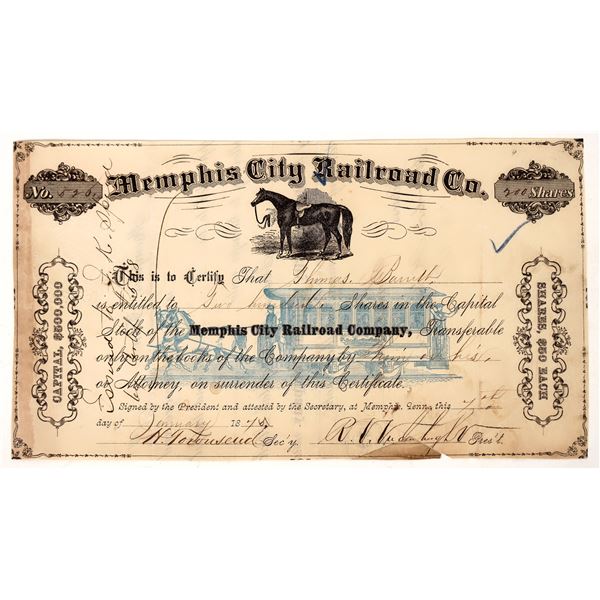 Memphis City Railroad Co.
No. 526
200 Shares
This is to Certify That Thomas Barrett
is entitled to Two hundred Shares in the Capital
Stock of the Memphis City Railroad Company, Transferable
only on the books of the Company by
or Attorney, on surrender of this Certificate.
Signed by the President and attested by the Secretary, at Memphis, Tenn., this
day of January 1875
Townsend Sec'y.
Pres't.
CAPITAL, $500,000
SHARES, $50 EACH